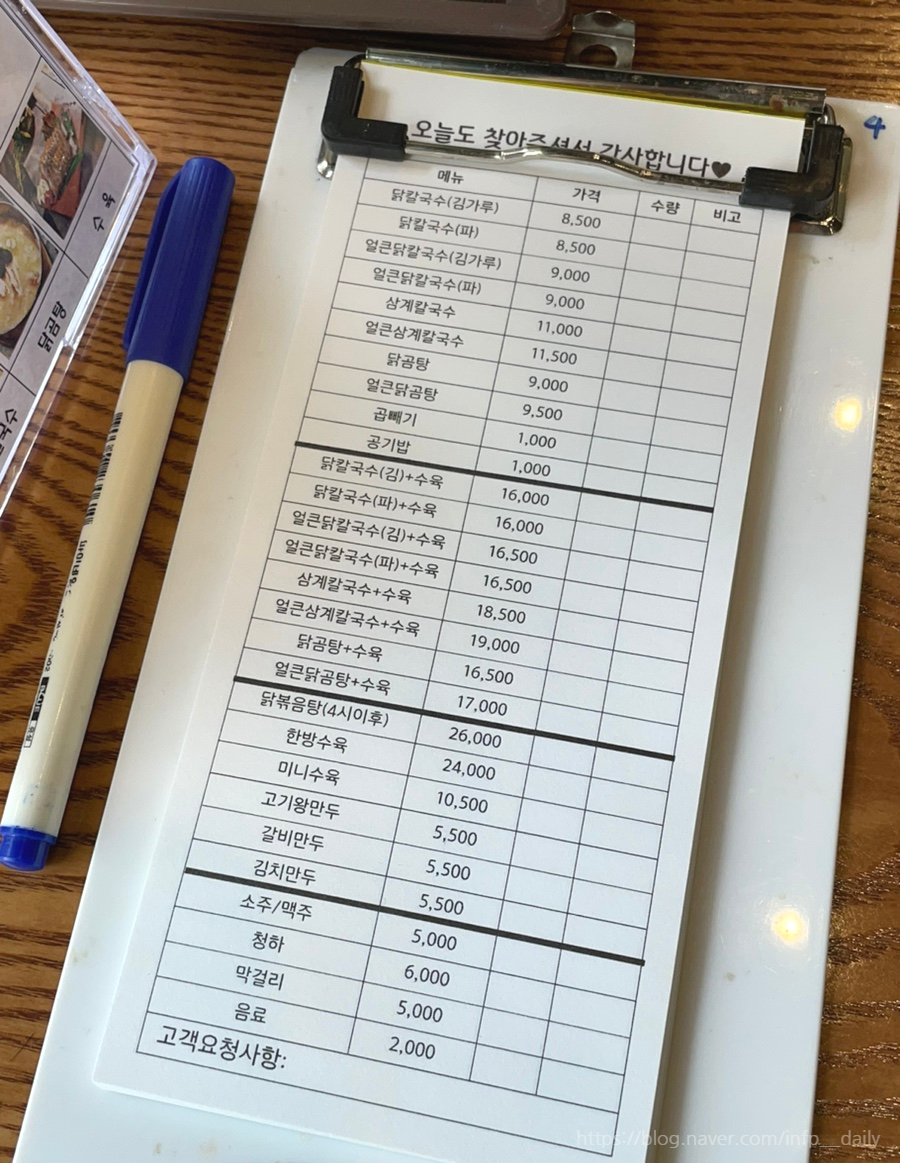 오늘도 찾아주셔서 감사합니다♥
4
메뉴 가격 수량 비고
닭칼국수(김가루) 8,500
닭칼국수(파) 8,500
얼큰닭칼국수(김가루) 9,000
얼큰닭칼국수(파) 9,000
삼계칼국수 11,000
얼큰삼계칼국수 11,500
닭곰탕 9,000
얼큰닭곰탕 9,500
곱빼기 1,000
공기밥 1,000
닭칼국수(김)+수육 16,000
닭칼국수(파)+수육 16,000
얼큰닭칼국수(김)+수육 16,500
얼큰닭칼국수(파)+수육 16,500
삼계칼국수+수육 18,500
얼큰삼계칼국수+수육 19,000
닭곰탕+수육 16,500
얼큰닭곰탕+수육 17,000
닭볶음탕(4시이후) 26,000
한방수육 24,000
미니수육 10,500
고기왕만두 5,500
갈비만두 5,500
김치만두 5,500
소주/맥주 5,000
청하 6,000
막걸리 5,000
음료 2,000
고객요청사항:
닭곰탕
https://blog.naver.com/info__daily